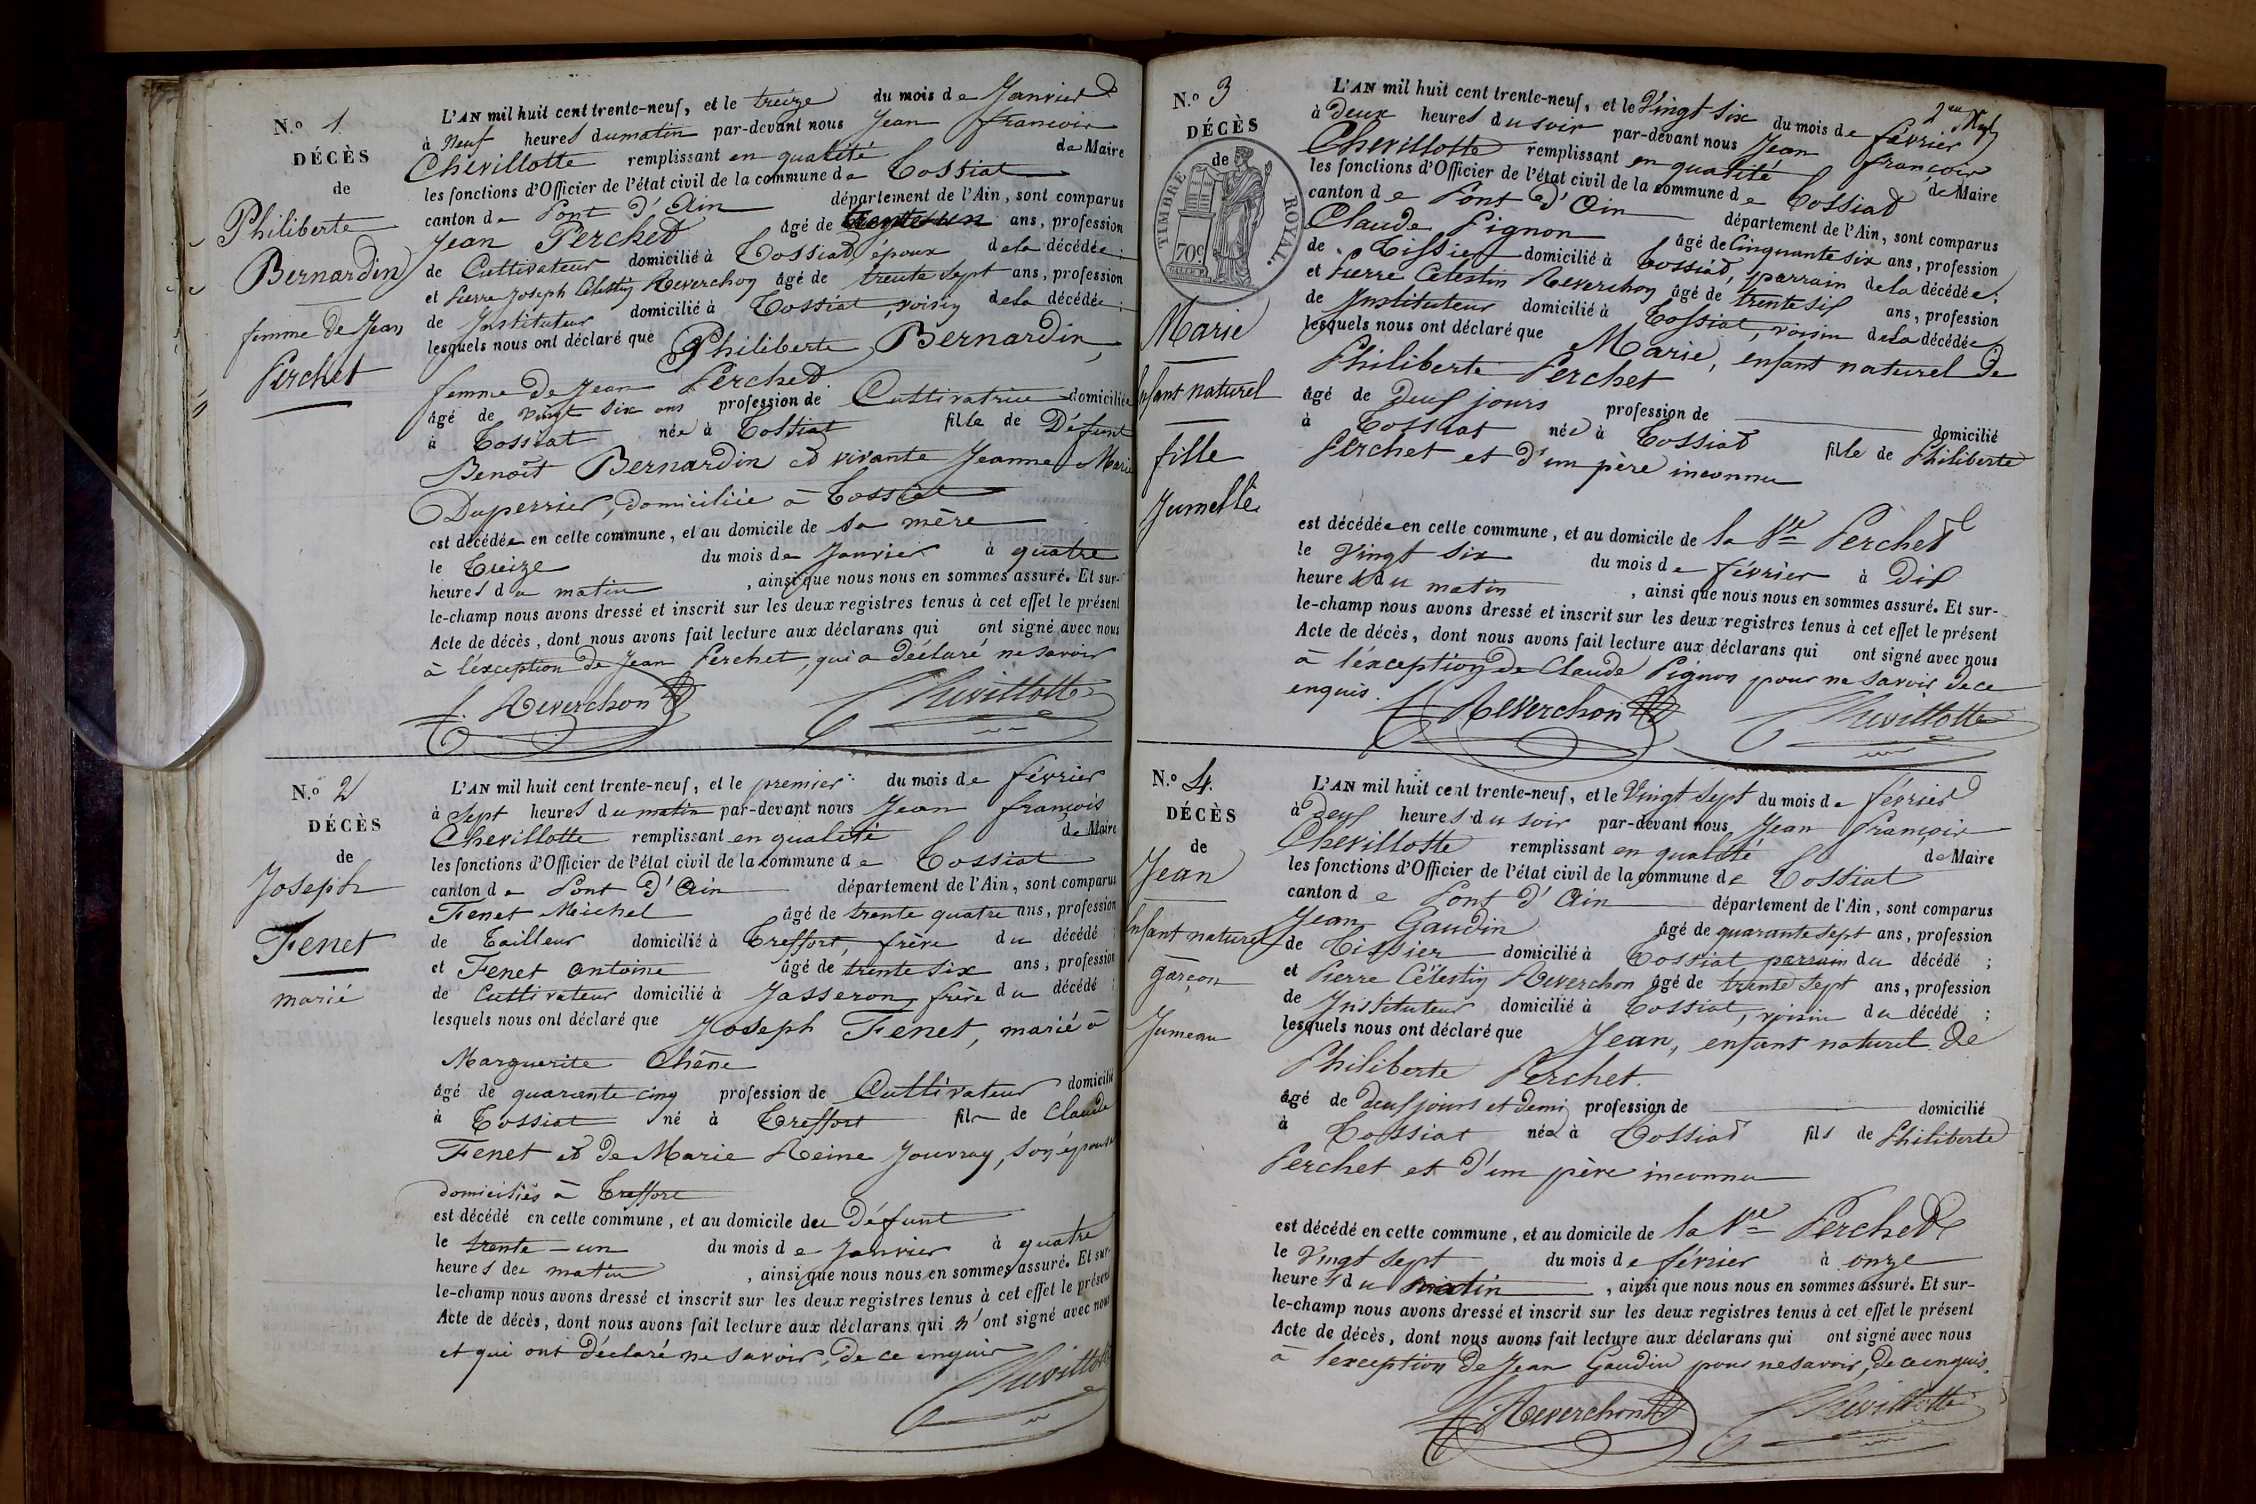 N.º 1
DÉCÈS
de
Philiberte
Bernardin
femme de Jean
Perchet
L'AN mil huit cent trente-neuf, et le treize du mois de Janvier
à Neuf heures du matin par-devant nous Jean François
Chevillotte remplissant en qualité de Maire
les fonctions d'Officier de l'état civil de la commune de Tossiat
canton de Pont d'Ain département de l'Ain, sont comparus
Jean Perchet âgé de trente un ans, profession
de Cultivateur domicilié à Tossiat, époux de la décédée;
et Pierre Joseph Célestin Reverchon âgé de trente sept ans, profession
de Instituteur domicilié à Tossiat, voisin de la décédée;
lesquels nous ont déclaré que Philiberte Bernardin,
femme de Jean Perchet
âgé de vingt six ans profession de Cultivatrice domiciliée
à Tossiat née à Tossiat fille de Défunt
Benoît Bernardin et vivante Jeanne Marie
Duperrier, domiciliée à Tossiat
est décédée en cette commune, et au domicile de sa mère
le Treize du mois de Janvier à quatre
heures du matin, ainsi que nous nous en sommes assuré. Et sur-
le-champ nous avons dressé et inscrit sur les deux registres tenus à cet effet le présent
Acte de décès, dont nous avons fait lecture aux déclarans qui ont signé avec nous
à l'éxception de Jean Perchet, qui a déclaré ne savoir
Reverchon Chevillotte
N.º 2
DÉCÈS
de
Joseph
Fenet
marié
L'AN mil huit cent trente-neuf, et le premier du mois de février
à sept heures du matin par-devant nous Jean françois
Chevillotte remplissant en qualité de Maire
les fonctions d'Officier de l'état civil de la commune de Tossiat
canton de Pont d'Ain département de l'Ain, sont comparus
Fenet Michel âgé de trente quatre ans, profession
de Tailleur domicilié à Treffort, frère du décédé;
et Fenet Antoine âgé de trente six ans, profession
de Cultivateur domicilié à Jasseron, frère du décédé;
lesquels nous ont déclaré que Joseph Fenet, marié à
Marguerite Chêne
âgé de quarante cinq profession de Cultivateur domicilié
à Tossiat né à Treffort fils de Claude
Fenet et de Marie Reine Jouvray, son épouse
domiciliés à Treffort
est décédé en cette commune, et au domicile du Défunt
le trente-un du mois de Janvier à quatre
heures du matin, ainsi que nous nous en sommes assuré. Et sur-
le-champ nous avons dressé et inscrit sur les deux registres tenus à cet effet le présent
Acte de décès, dont nous avons fait lecture aux déclarans qui n'ont signé avec nous
et qui ont déclaré ne savoir, de ce enquis
Chevillotte
N.º 3
DÉCÈS
de
TIMBRE ROYAL.
70c
Marie
Enfant naturel
fille
Jumelle
L'AN mil huit cent trente-neuf, et le Vingt six du mois de février
à deux heures du soir par-devant nous Jean françois
Chevillotte remplissant en qualité de Maire
les fonctions d'Officier de l'état civil de la commune de Tossiat
canton de Pont d'Ain département de l'Ain, sont comparus
Claude Pignon âgé de Cinquante six ans, profession
de Tissier domicilié à Tossiat, parrain de la décédée;
et Pierre Célestin Reverchon âgé de trente sif ans, profession
de Instituteur domicilié à Tossiat, voisin de la décédée
lesquels nous ont déclaré que Marie, enfant naturel de
Philiberte Perchet
âgé de deuf jours profession de domicilié
à Tossiat née à Tossiat fille de Philiberte
Perchet et d'un père inconnu
est décédée en cette commune, et au domicile de la Ve Perchet
le vingt six du mois de février à dif
heures du matin, ainsi que nous nous en sommes assuré. Et sur-
le-champ nous avons dressé et inscrit sur les deux registres tenus à cet effet le présent
Acte de décès, dont nous avons fait lecture aux déclarans qui ont signé avec nous
à l'éxception de Claude Pignon pour ne savoir de ce
enquis.
Reverchon Chevillotte
N.º 4.
DÉCÈS
de
Jean
Enfant naturel
garçon
Jumeau
L'AN mil huit cent trente-neuf, et le Vingt sept du mois de février
à deuf heures du soir par-devant nous Jean françois
Chevillotte remplissant en qualité de Maire
les fonctions d'Officier de l'état civil de la commune de Tossiat
canton de Pont d'Ain département de l'Ain, sont comparus
Jean Gaudin âgé de quarante sept ans, profession
de Tissier domicilié à Tossiat parrain du décédé;
et Pierre Célestin Reverchon âgé de trente sept ans, profession
de Instituteur domicilié à Tossiat, voisin du décédé;
lesquels nous ont déclaré que Jean, enfant naturel de
Philiberte Perchet.
âgé de deuf jours et demi profession de domicilié
à Tossiat née à Tossiat fils de Philiberte
Perchet et d'un père inconnu
est décédé en cette commune, et au domicile de la Ve Perchet
le Vingt sept du mois de février à onze
heures du matin, ainsi que nous nous en sommes assuré. Et sur-
le-champ nous avons dressé et inscrit sur les deux registres tenus à cet effet le présent
Acte de décès, dont nous avons fait lecture aux déclarans qui ont signé avec nous
à l'exception de Jean Gaudin pour ne savoir, de ce enquis.
Reverchon Chevillotte